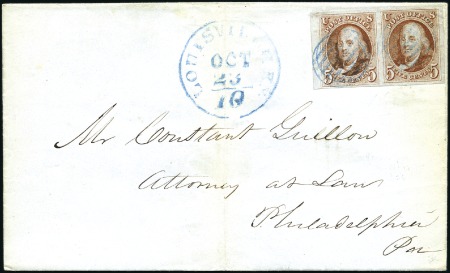 POST OFFICE POST OFFICE
5 FIVE CENTS 5 5 FIVE CENTS 5
LOUISVILLE KY.
OCT
23
10
Mr Constant Guillou
Attorney at Law
Philadelphia
Pa